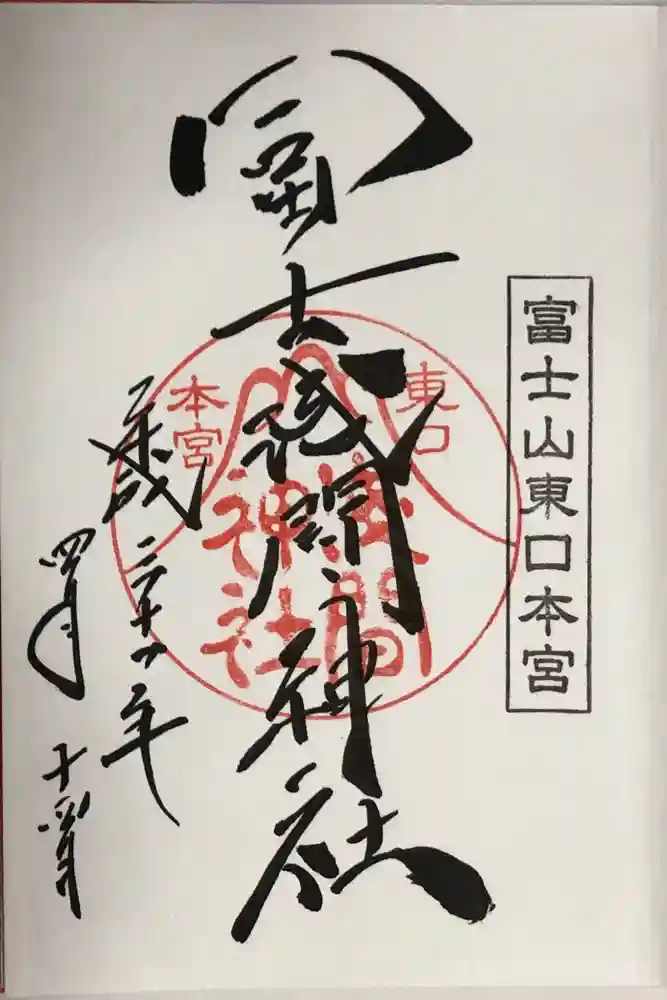 富士山東口本宮
冨士浅間神社
東口
本宮
浅間
神社
平成
年
四月